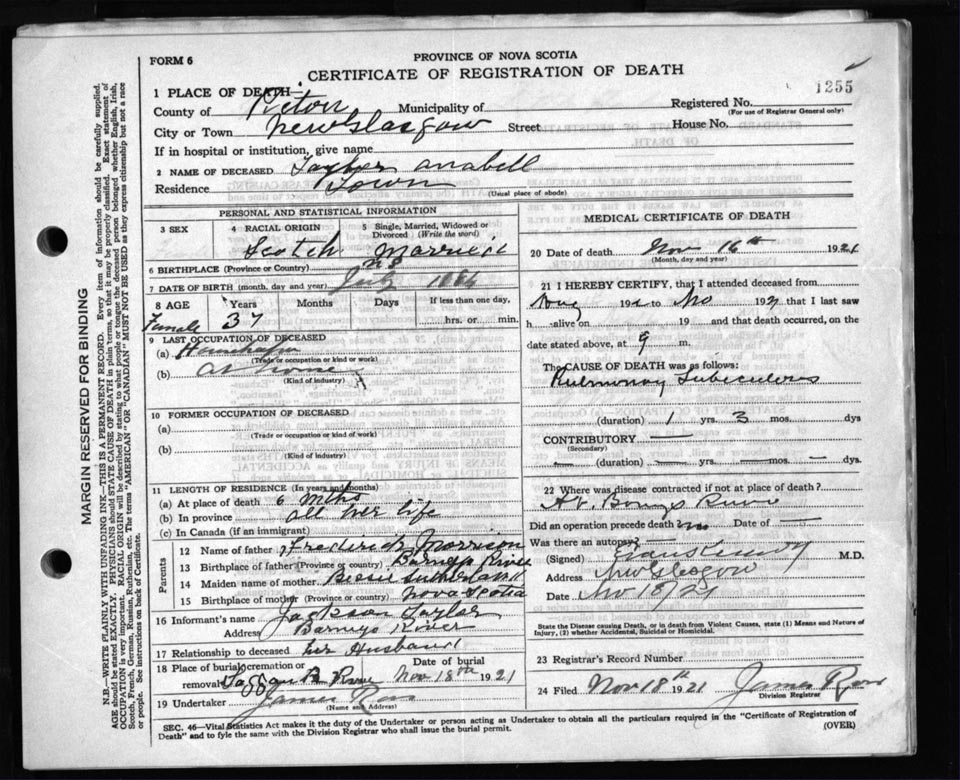 FORM 6
PROVINCE OF NOVA SCOTIA
CERTIFICATE OF REGISTRATION OF DEATH
1255
1 PLACE OF DEATH
County of Pictou Municipality of Registered No.
(For use of Registrar General only)
City or Town New Glasgow Street House No.
If in hospital or institution, give name
2 NAME OF DECEASED Taylor Anabell
Residence Town
(Usual place of abode)
PERSONAL AND STATISTICAL INFORMATION
3 SEX 4 RACIAL ORIGIN 5 Single, Married, Widowed or Divorced (Write the word)
Scotch Married
6 BIRTHPLACE (Province or Country) N S
7 DATE OF BIRTH (month, day and year) July 1884
8 AGE Years Months Days If less than one day,
Female 37 hrs. or min.
9 LAST OCCUPATION OF DECEASED
(a)
(Trade or occupation or kind or work)
(b) at home
(Kind of industry)
10 FORMER OCCUPATION OF DECEASED
(a)
(Trade or occupation or kind of work)
(b)
(Kind of Industry)
11 LENGTH OF RESIDENCE (In years and months)
(a) At place of death 6 mths
(b) In province all her life
(c) In Canada (if an immigrant)
Parents
12 Name of father Frederick Morrison
13 Birthplace of father (Province or country) Barneys River
14 Maiden name of mother Bessie Sutherland
15 Birthplace of mother (Province or country) Nova Scotia
16 Informant's name Jackson Taylor
Address Barneys River
17 Relationship to deceased her Husband
18 Place of burial, cremation or removal Date of burial
Nov 18th 1921
19 Undertaker James Ross
(Name and Address)
MEDICAL CERTIFICATE OF DEATH
20 Date of death Nov 16th 1921
(Month, day and year)
21 I HEREBY CERTIFY, that I attended deceased from
Aug 192 to No 192 that I last saw
h alive on 19 and that death occurred, on the
date stated above, at 9 m.
The CAUSE OF DEATH was as follows:
Pulmonary Tubeculous
(duration) 1 yrs. 3 mos. dys
CONTRIBUTORY —
(Secondary)
— (duration) — yrs. — mos. — dys
22 Where was disease contracted if not at place of death?
At Barneys River
Did an operation precede death no Date of —
Was there an autopsy —
(Signed) M.D.
Address New Glasgow
Date Nov 18/21
State the Disease causing Death, or in death from Violent Causes, state (1) Means and Nature of
Injury, (2) whether Accidental, Suicidal or Homicidal.
23 Registrar's Record Number
24 Filed Nov 18th 1921 James Ross
Division Registrar
SEC. 46—Vital Statistics Act makes it the duty of the Undertaker or person acting as Undertaker to obtain all the particulars required in the "Certificate of Registration of
Death" and to fyle the same with the Division Registrar who shall issue the burial permit.
(OVER)
MARGIN RESERVED FOR BINDING
N.B.—WRITE PLAINLY WITH UNFADING INK—THIS IS A PERMANENT RECORD. Every item of information should be carefully supplied.
AGE should be stated EXACTLY. PHYSICIANS should STATE CAUSE OF DEATH in plain terms, so that it may be properly classified. Exact statement of
OCCUPATION is very important. RACIAL ORIGIN will be described by stating to what people or tongue the deceased person belonged whether English, Irish,
Scotch, French, German, Russian, Ruthenian, etc. The terms "AMERICAN" or "CANADIAN" MUST NOT BE USED as they express citizenship but not a race
or people. See instructions on back of Certificate.